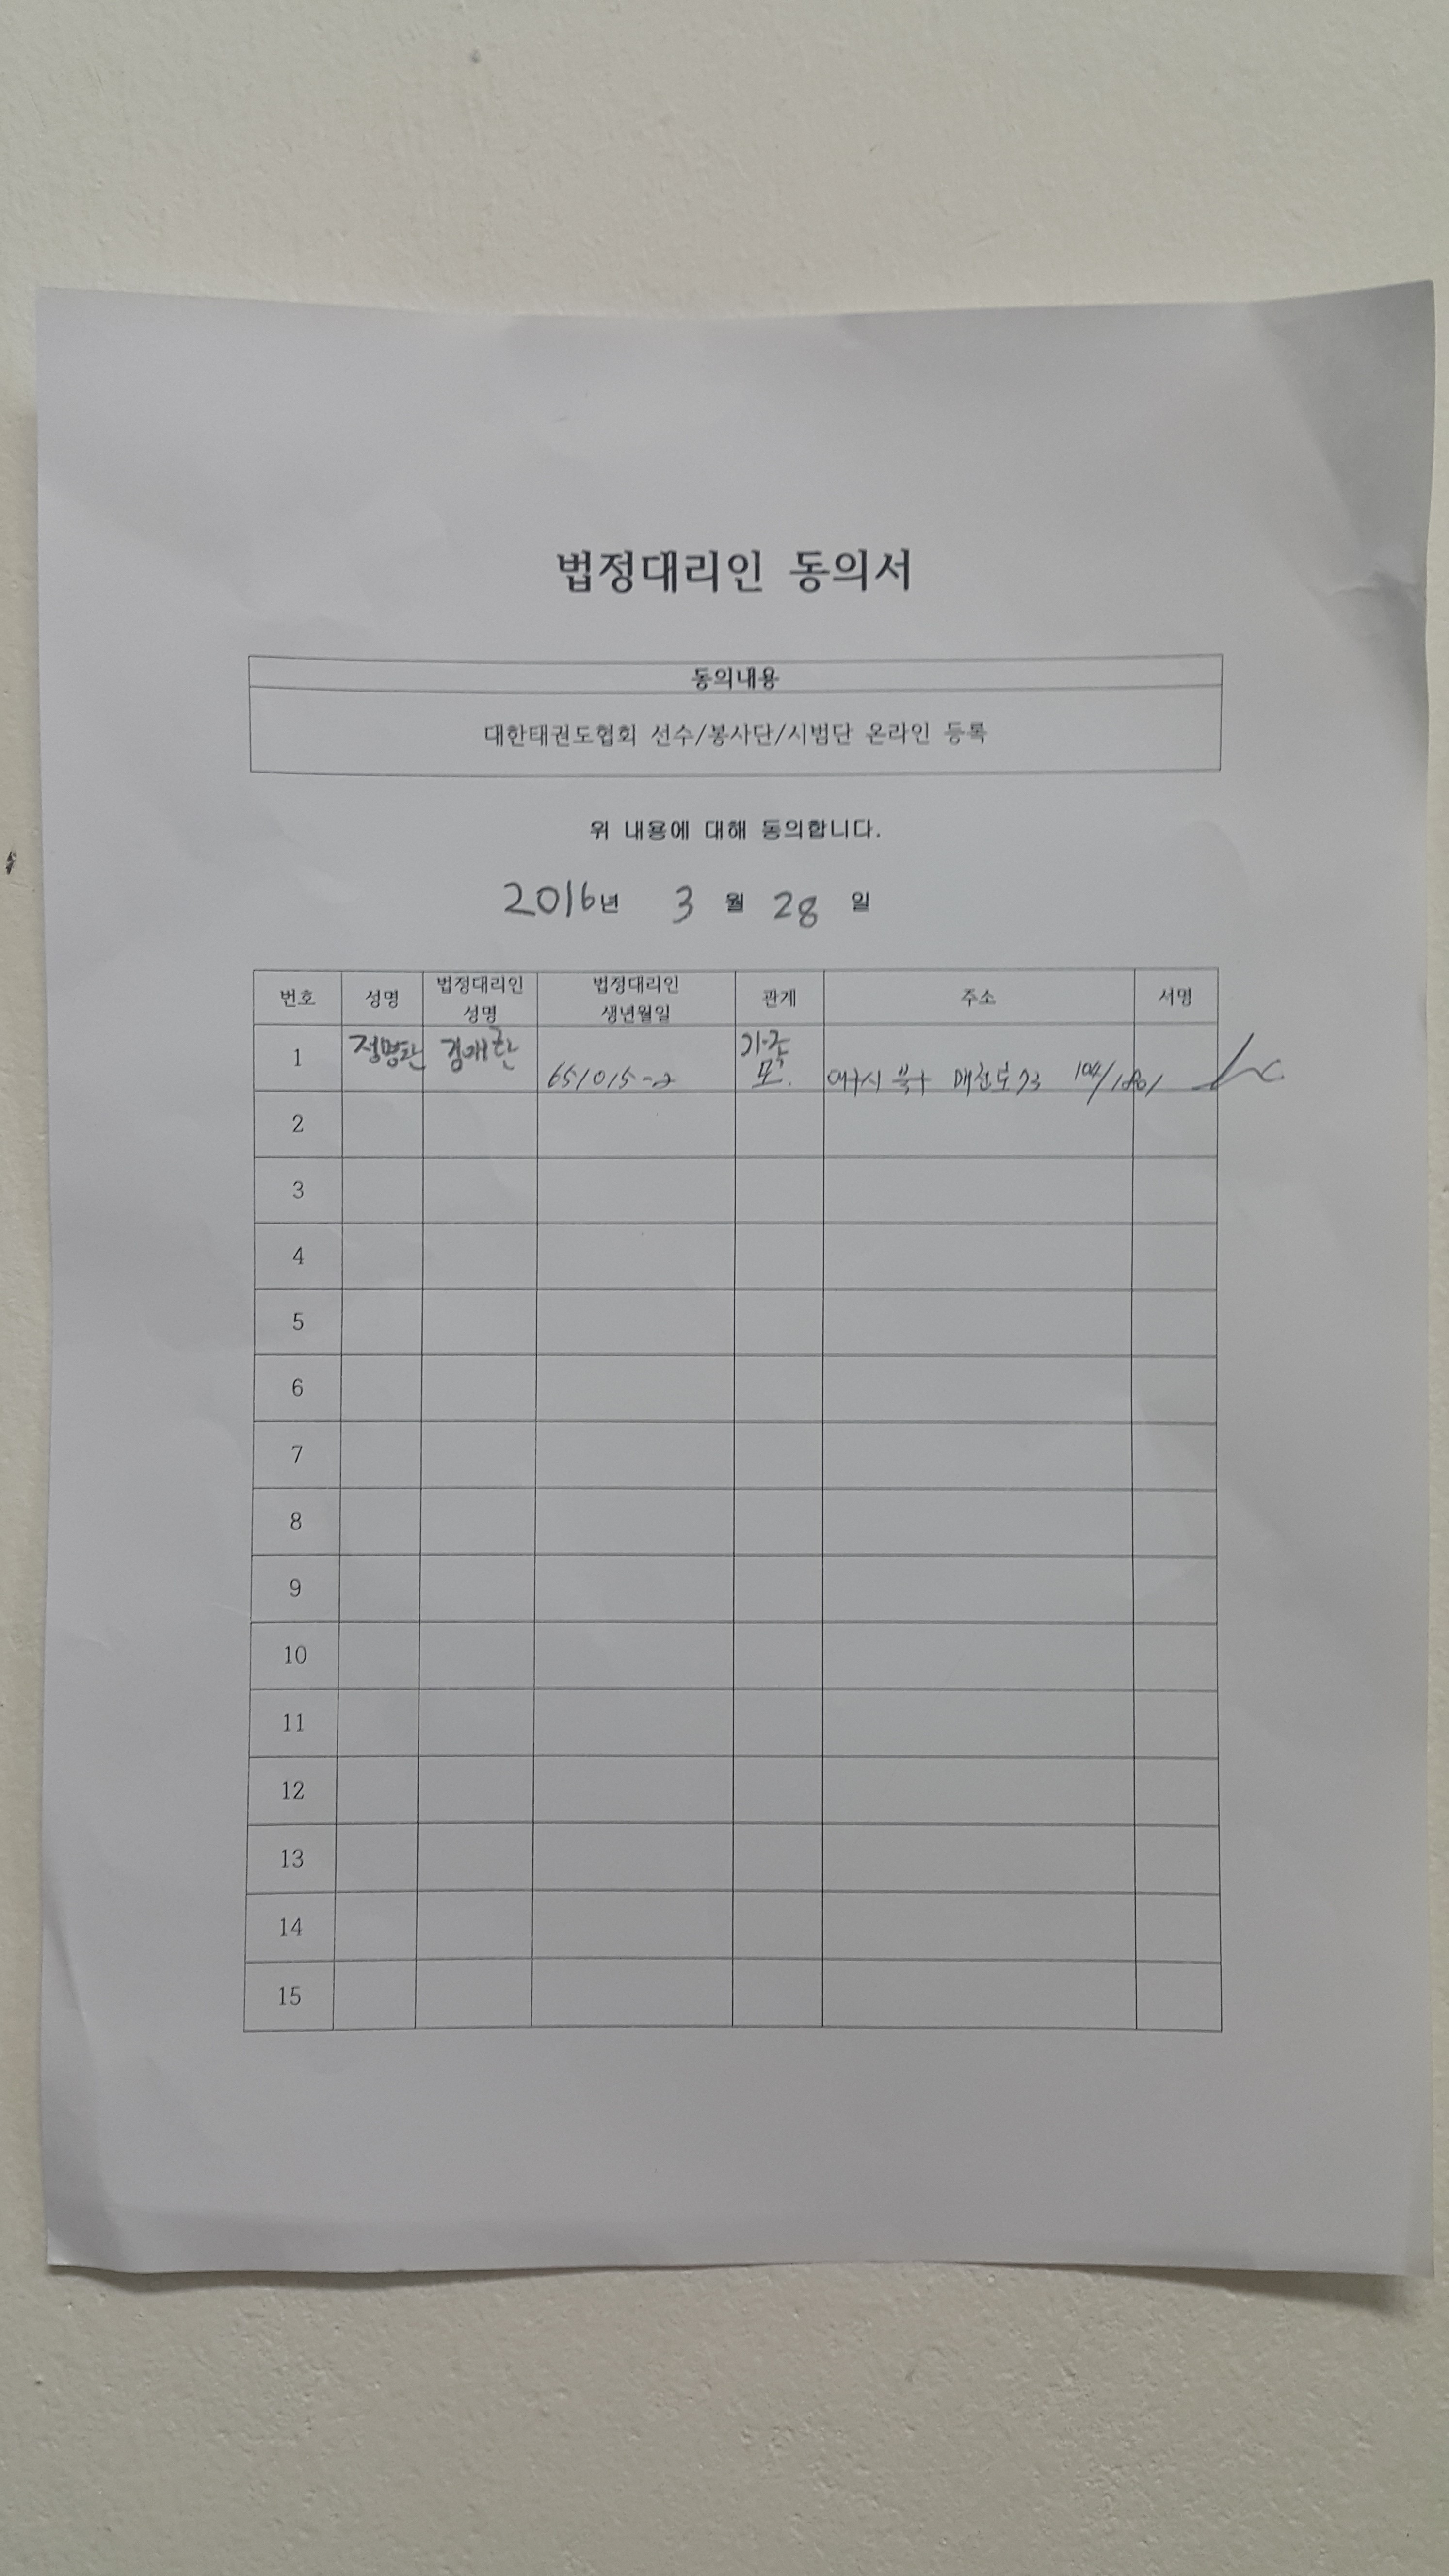 법정대리인 동의서
동의내용
대한태권도협회 선수/봉사단/시범단 온라인 등록
위 내용에 대해 동의합니다.
2016년 3 월 28 일
번호 성명 법정대리인 성명 법정대리인 생년월일 관계 주소 서명
1 651015-2 가족 모. 북구 매천로
2
3
4
5
6
7
8
9
10
11
12
13
14
15